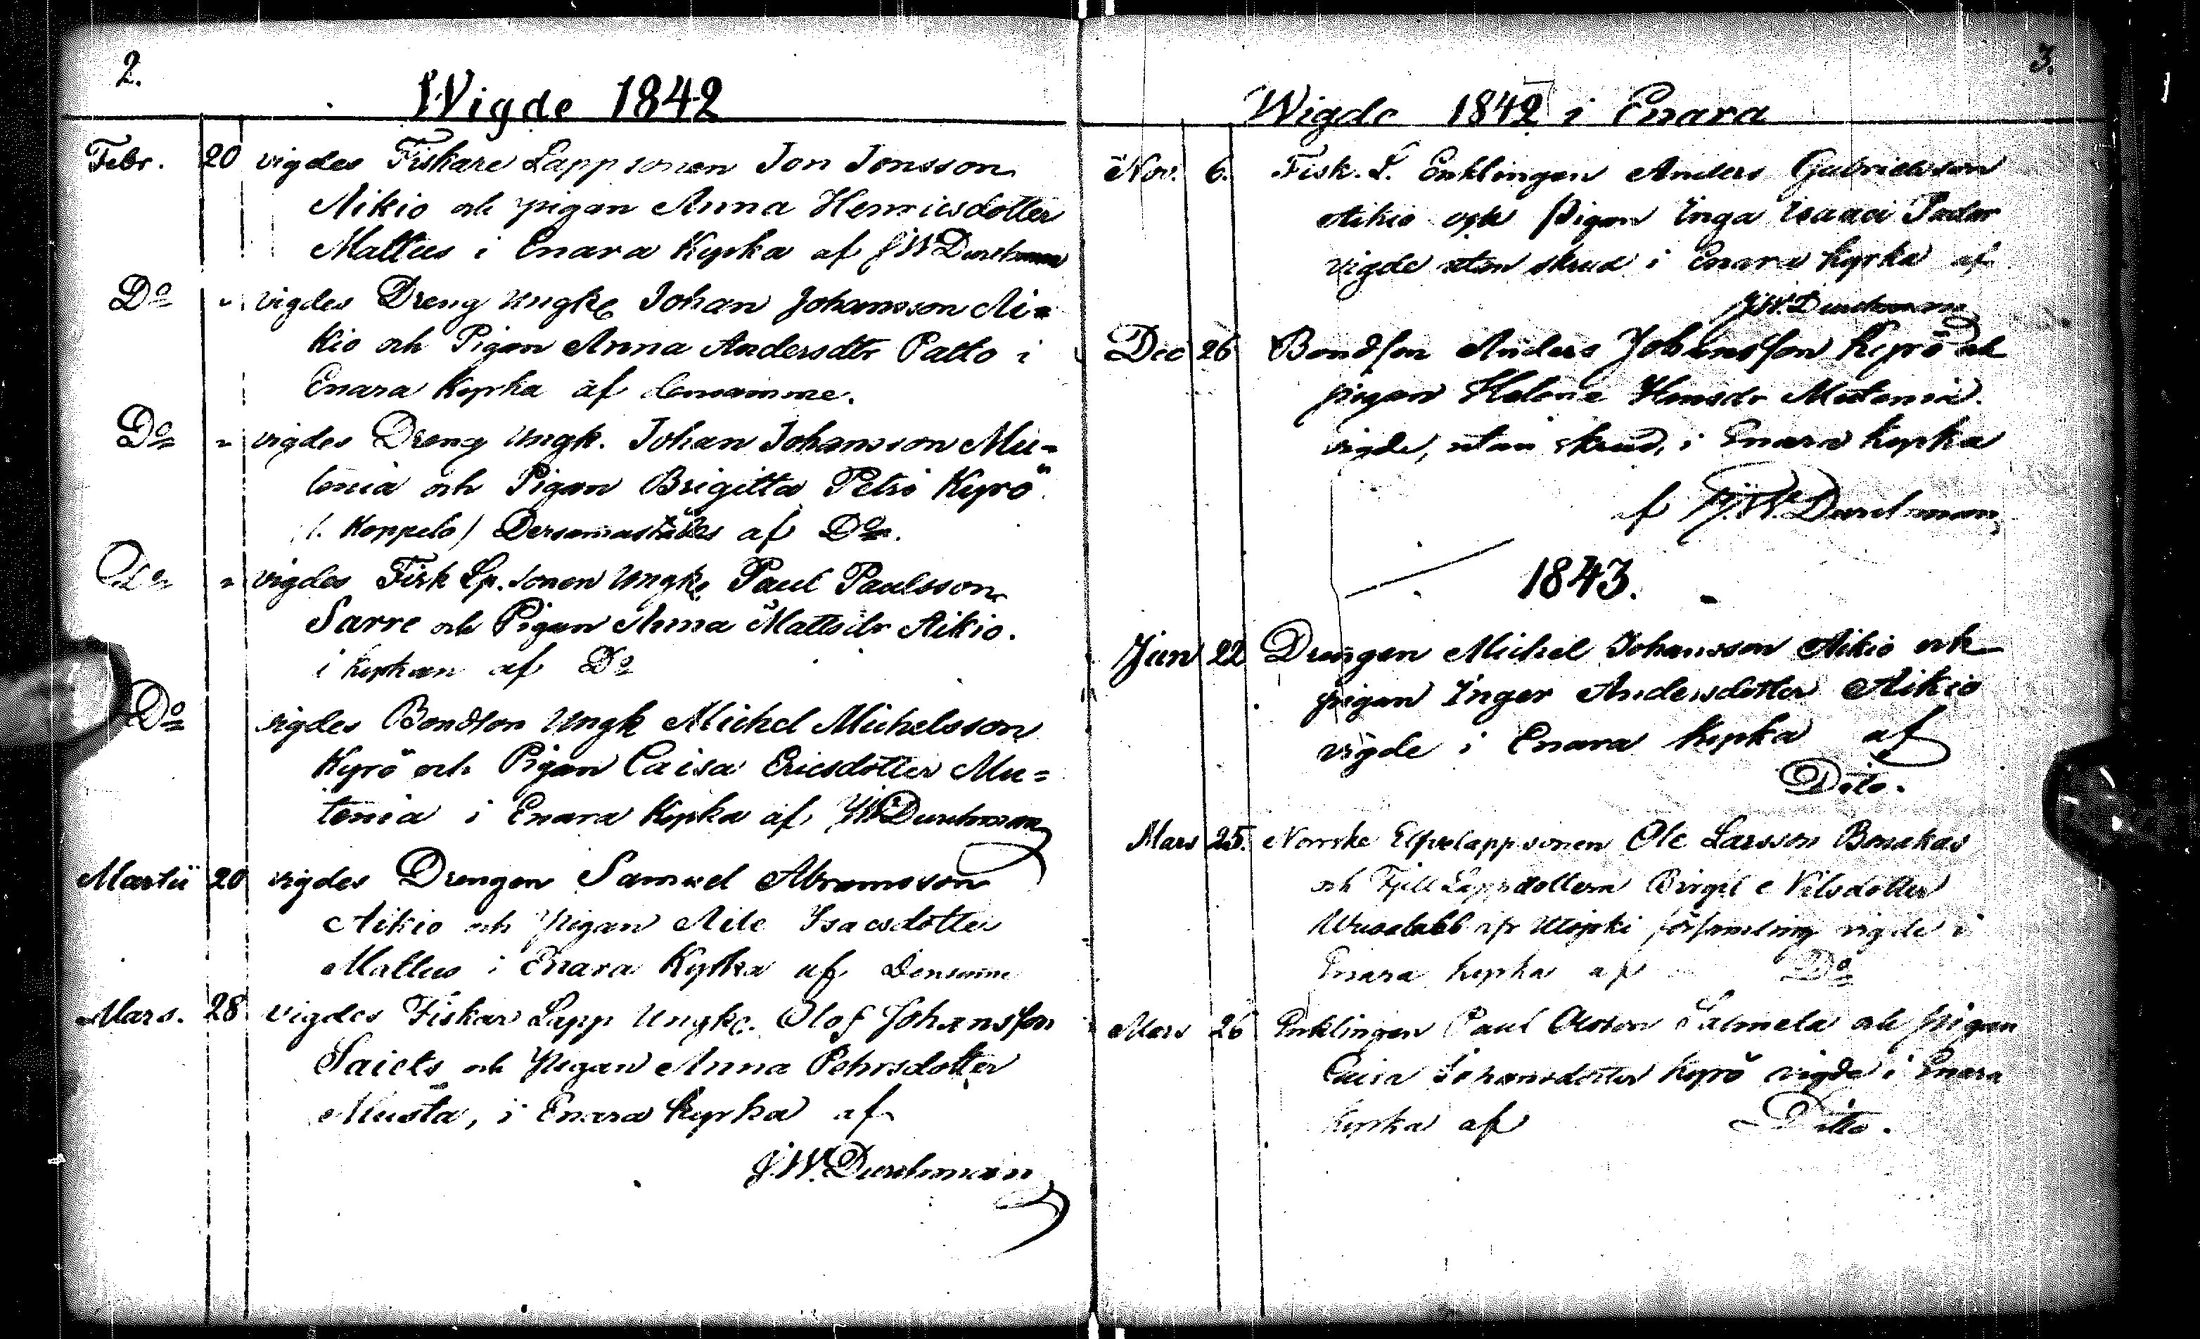 2.
Wigde 1842
Febr. 20 vigdes Fiskare Lapp sonen Jon Jonsson
Aikio och pigan Anna Henricsdotter
Mattus i Enara Kyrka af JW Durchman
Do " vigdes Dreng Ungk. Johan Johansson Ai=
kio och Pigan Anna Andersdtr Patto i
Enara Kyrka af densamme.
Do " vigdes Dreng Ungk. Johan Johansson Mu=
tenia och Pigan Brigitta Petri Kyrö
(. Koppelo) Dersammastädes af Do.
" vigdes Fisk Lp. sonen Ungk. Paul Paulsson
Sarre och Pigan Anna Mattsdr Aikio.
i kyrkan af Do
Do vigdes Bondson Ungk Michel Michelsson
Kyrö och Pigan Caisa Ericsdotter Mu=
tenia i Enara Kyrka af JW Durchman
Martii 20 vigdes Drengen Samuel Abramsson
Aikio och pigan Aile Isacsdotter
Mattus i Enara Kyrka af Densamme
Mars. 28 vigdes Fiskar Lapp Ungk. Olof Johansson
Saiets och Pigan Anna Pehrsdotter
Musta, i Enara Kyrka af
J.W. Durchman
3.
Wigde 1842 i Enara
Nov. 6. Fisk. L. Enklingen Anders Gabrielsson
Aikio och Pigan Inga Isaaci Padar
vigde utan skrud i Enara kyrka af
J.W. Durchman
Dec 26 Bondson Anders Johansson Kyrö och
pigan Helena Hansdr Mutenia.
vigde, utan skrud, i Enara kyrka
af J.W. Durchman
1843.
Jan 22 Drengen Michel Johansson Aikio och
pigan Inger Andersdotter Aikio
vigde i Enara Kyrka af
Dito.
Mars 25. Norrske Elfvelappsonen Ole Larsson Bonakas
och Fjell Lappdottern Birgit Nilsdotter
Utsjoki församling vigde i
Enara kyrka af Do
Mars 26 Enklingen Paul Olsson Salmela och pigan
Caisa Johansdotter Kyrö vigde i Enara
kyrka af Ditto.